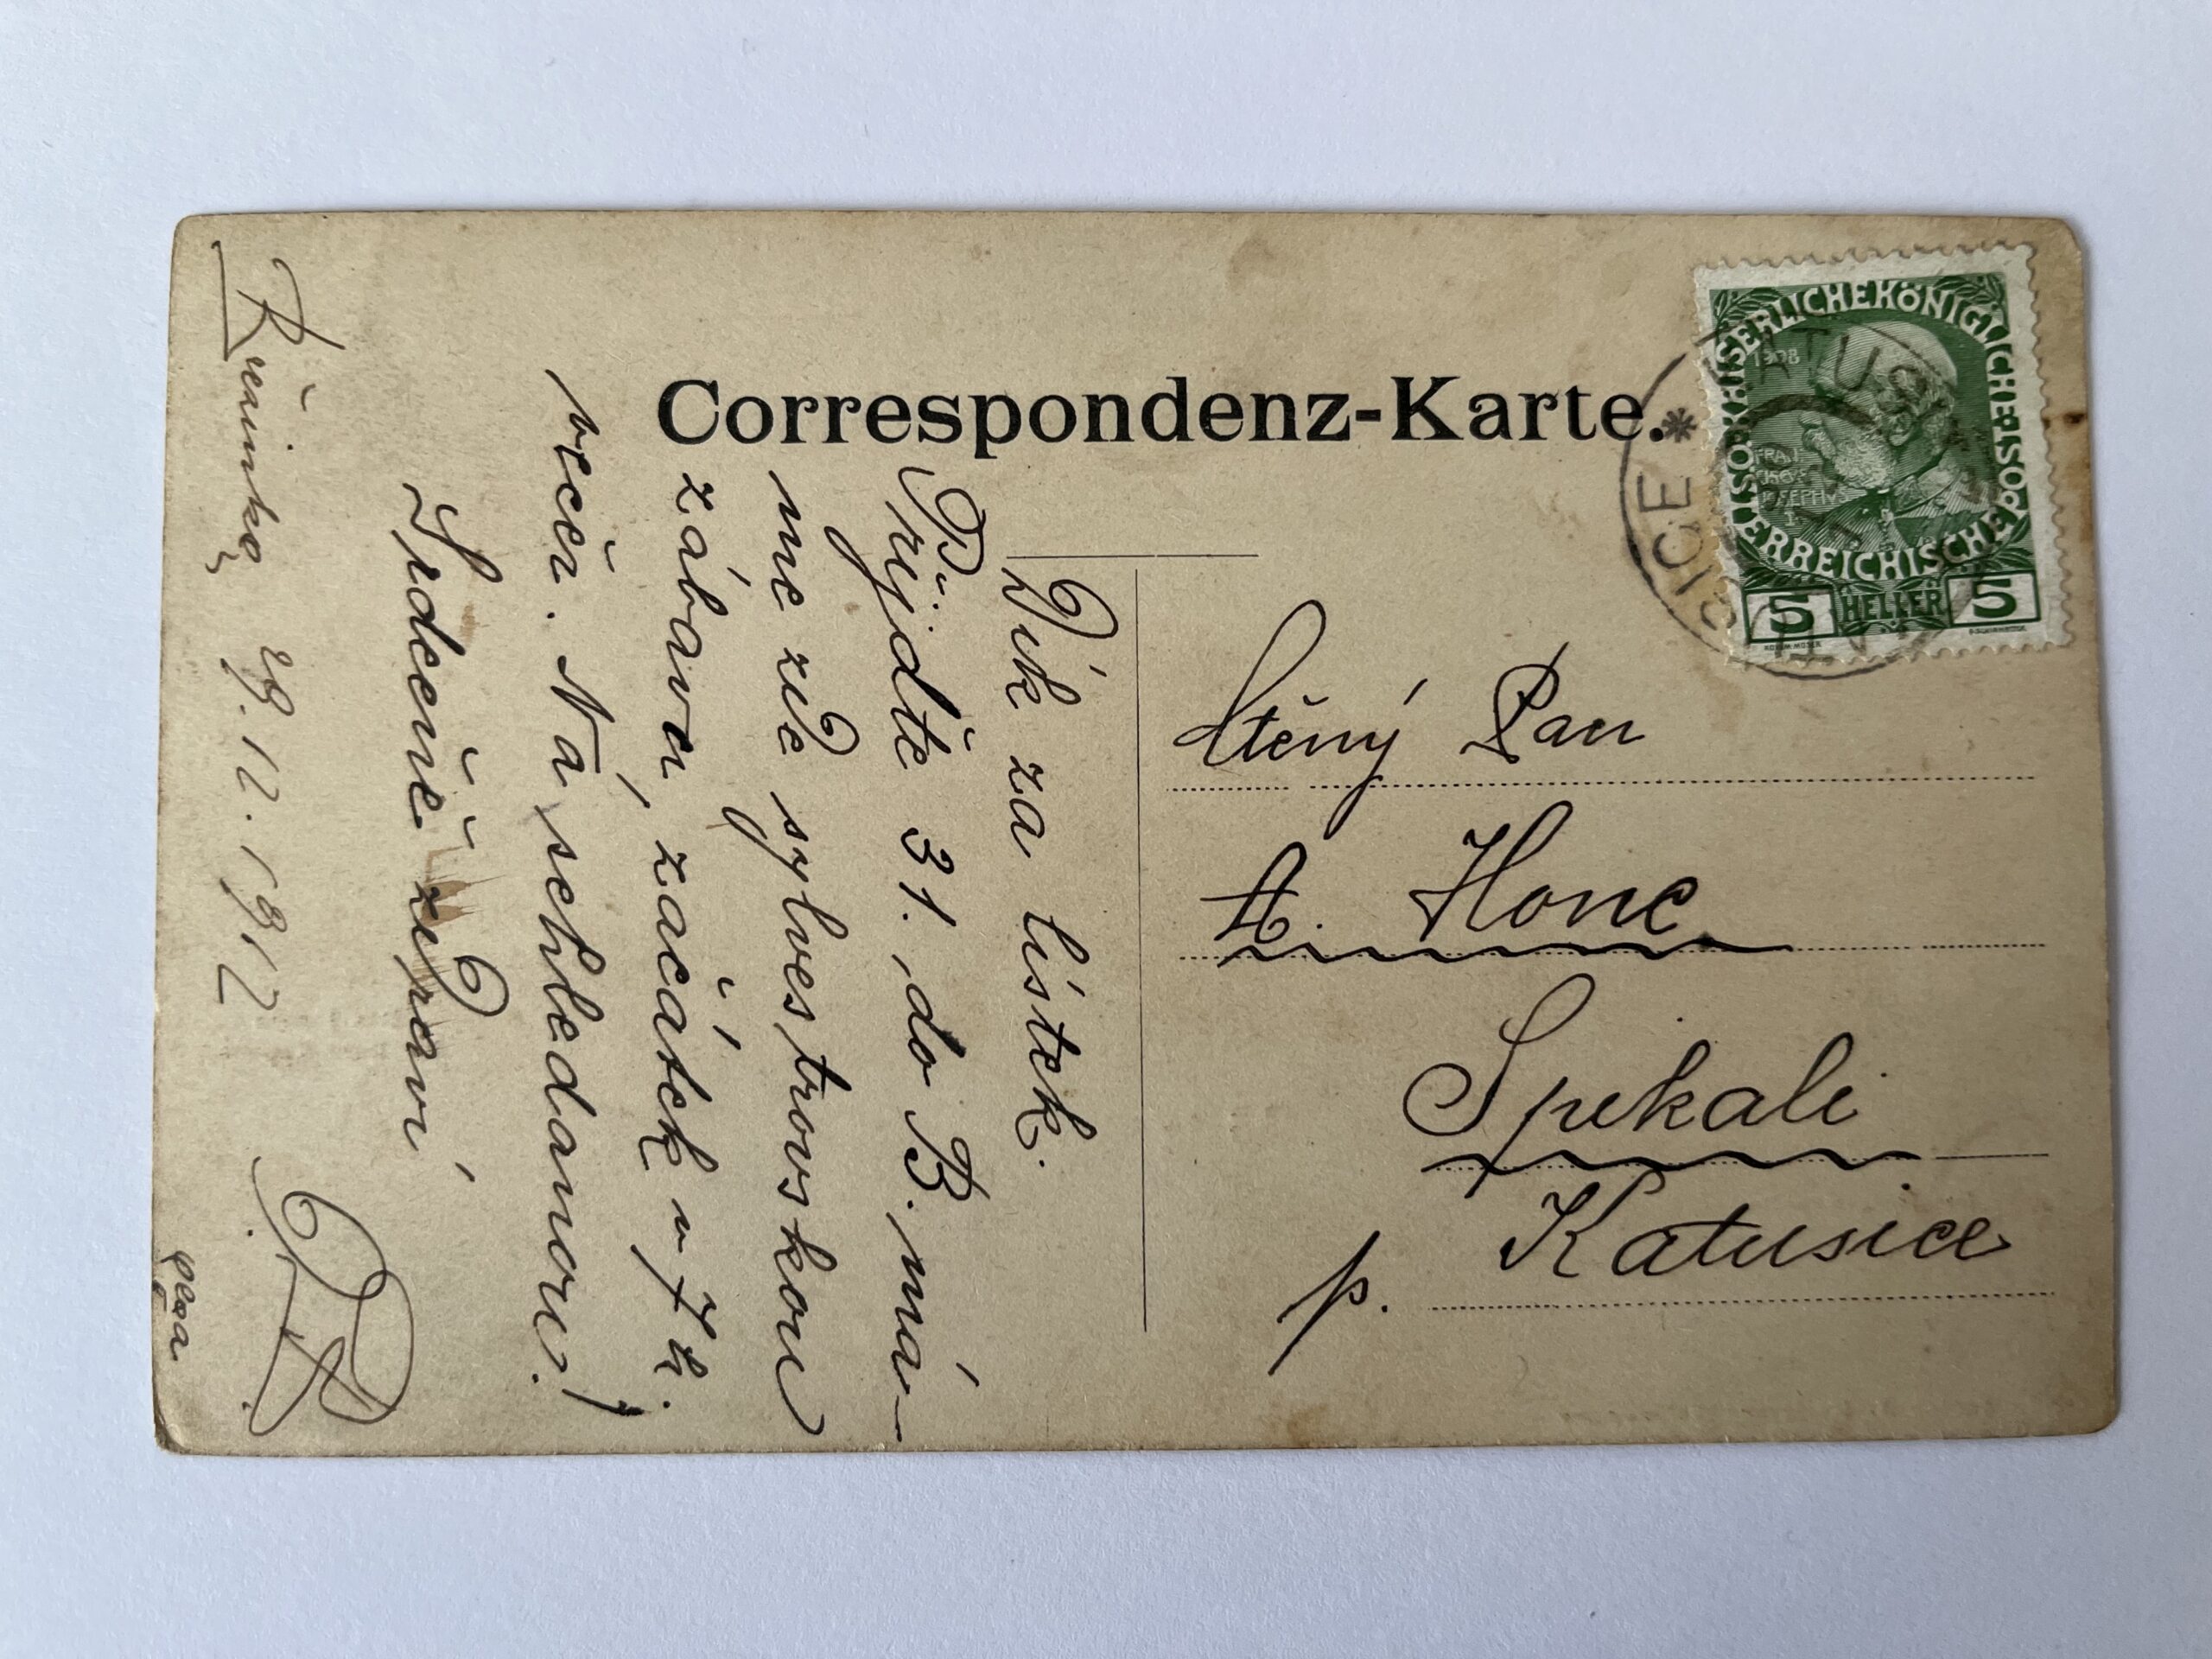 Correspondenz-Karte.
KAISERLICHE KÖNIGLICHE ÖSTERREICHISCHE POST
1908
FRAN
CISCVS
IOSEPHVS
I
5 HELLER 5
KATUSICE * KATUSICE *
Ctěný Pan
A. Honc
Spikali
p. Katusice
Dík za lístek.
Přijďte 31. do B. má-
me zde sylvestrovskou
zábavu, začátek v 7 h.
večer. Na schledanou!
Srdečně zdraví
29.12.1912